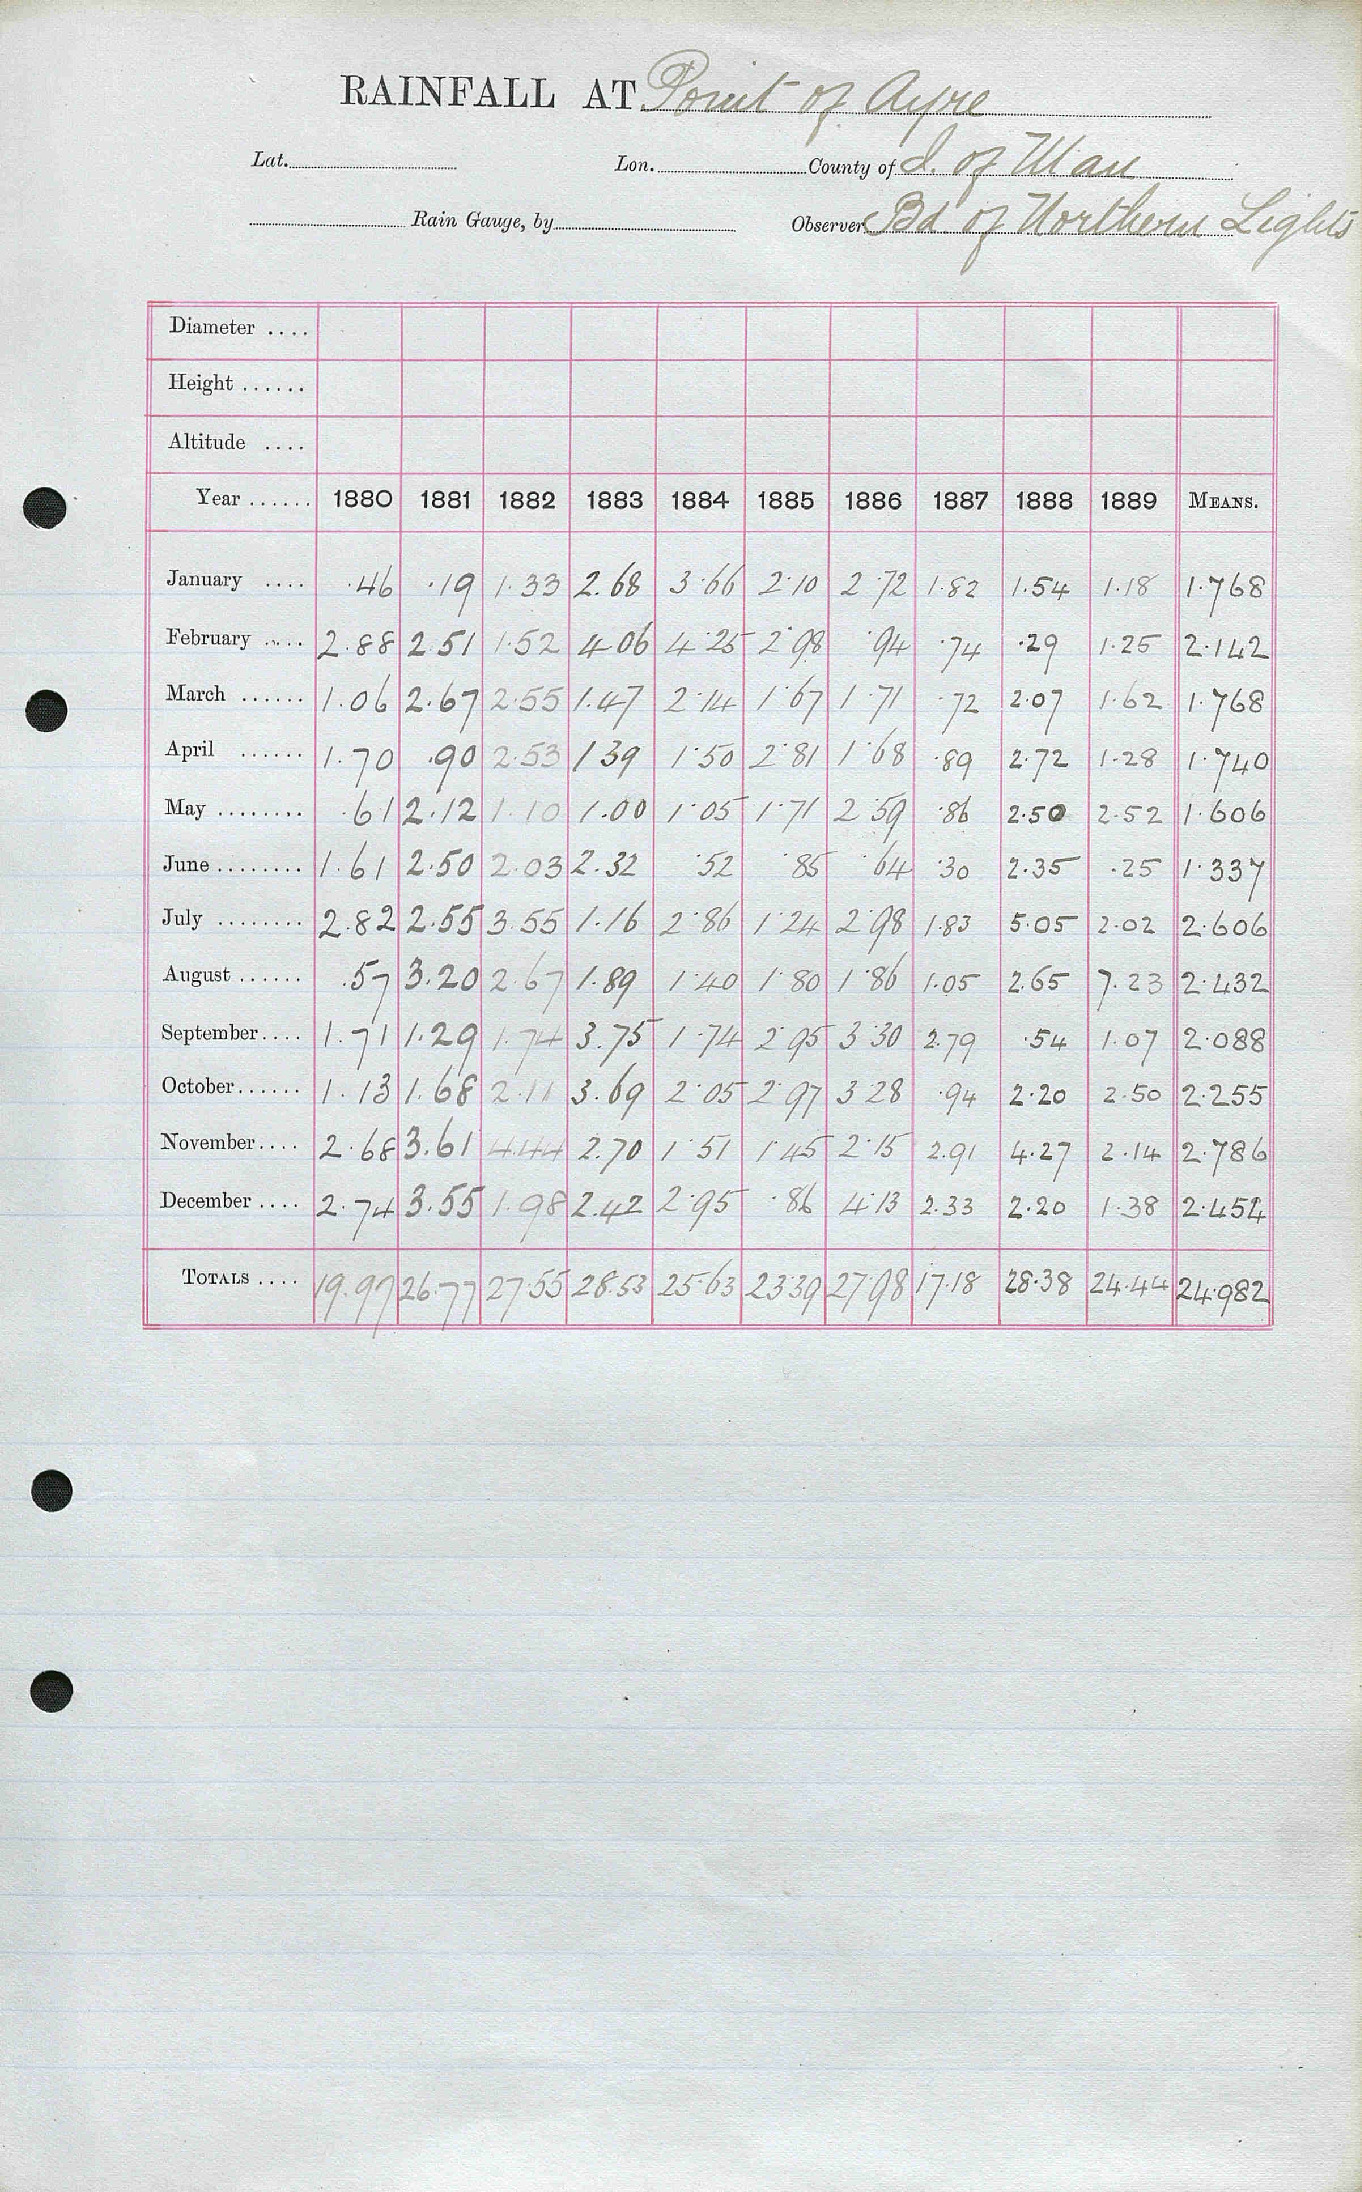 RAINFALL AT Point of Ayre
Lat. Lon. County of I. of Man
Rain Gauge, by Observer Bd of Northern Lights
Diameter ....
Height ......
Altitude ....
Year ...... 1880 1881 1882 1883 1884 1885 1886 1887 1888 1889 MEANS.
January .... ·46 ·19 1·33 2.68 3·66 2·10 2·72 1·82 1·54 1·18 1·768
February .... 2·88 2·51 1·52 4·06 4·25 2·98 ·94 ·74 ·29 1·25 2·142
March ...... 1·06 2·67 2·55 1·47 2·14 1·67 1·71 ·72 2·07 1·62 1·768
April ...... 1·70 ·90 2·53 1 39 1·50 2·81 1·68 ·89 2·72 1·28 1·740
May ........ ·61 2·12 1·10 1·00 1·05 1·71 2·59 ·86 2·50 2·52 1·606
June ........ 1·61 2·50 2·03 2·32 ·52 ·85 ·64 ·30 2·35 ·25 1·337
July ........ 2·82 2·55 3·55 1·16 2·86 1·24 2·98 1·83 5·05 2·02 2·606
August ...... ·57 3·20 2·67 1·89 1·40 1·80 1·86 1·05 2·65 7·23 2·432
September .... 1·71 1·29 1·74 3.75 1·74 2·95 3·30 2·79 ·54 1·07 2·088
October ...... 1·13 1·68 2·11 3·69 2·05 2·97 3·28 ·94 2·20 2·50 2·255
November .... 2·68 3.61 4·44 2·70 1·51 1·45 2·15 2·91 4·27 2·14 2·786
December .... 2·74 3·55 1·98 2·42 2·95 ·86 4·13 2·33 2·20 1·38 2·454
TOTALS .... 19·97 26·77 27·55 28·53 25·63 23·39 27·98 17·18 28·38 24·44 24·982